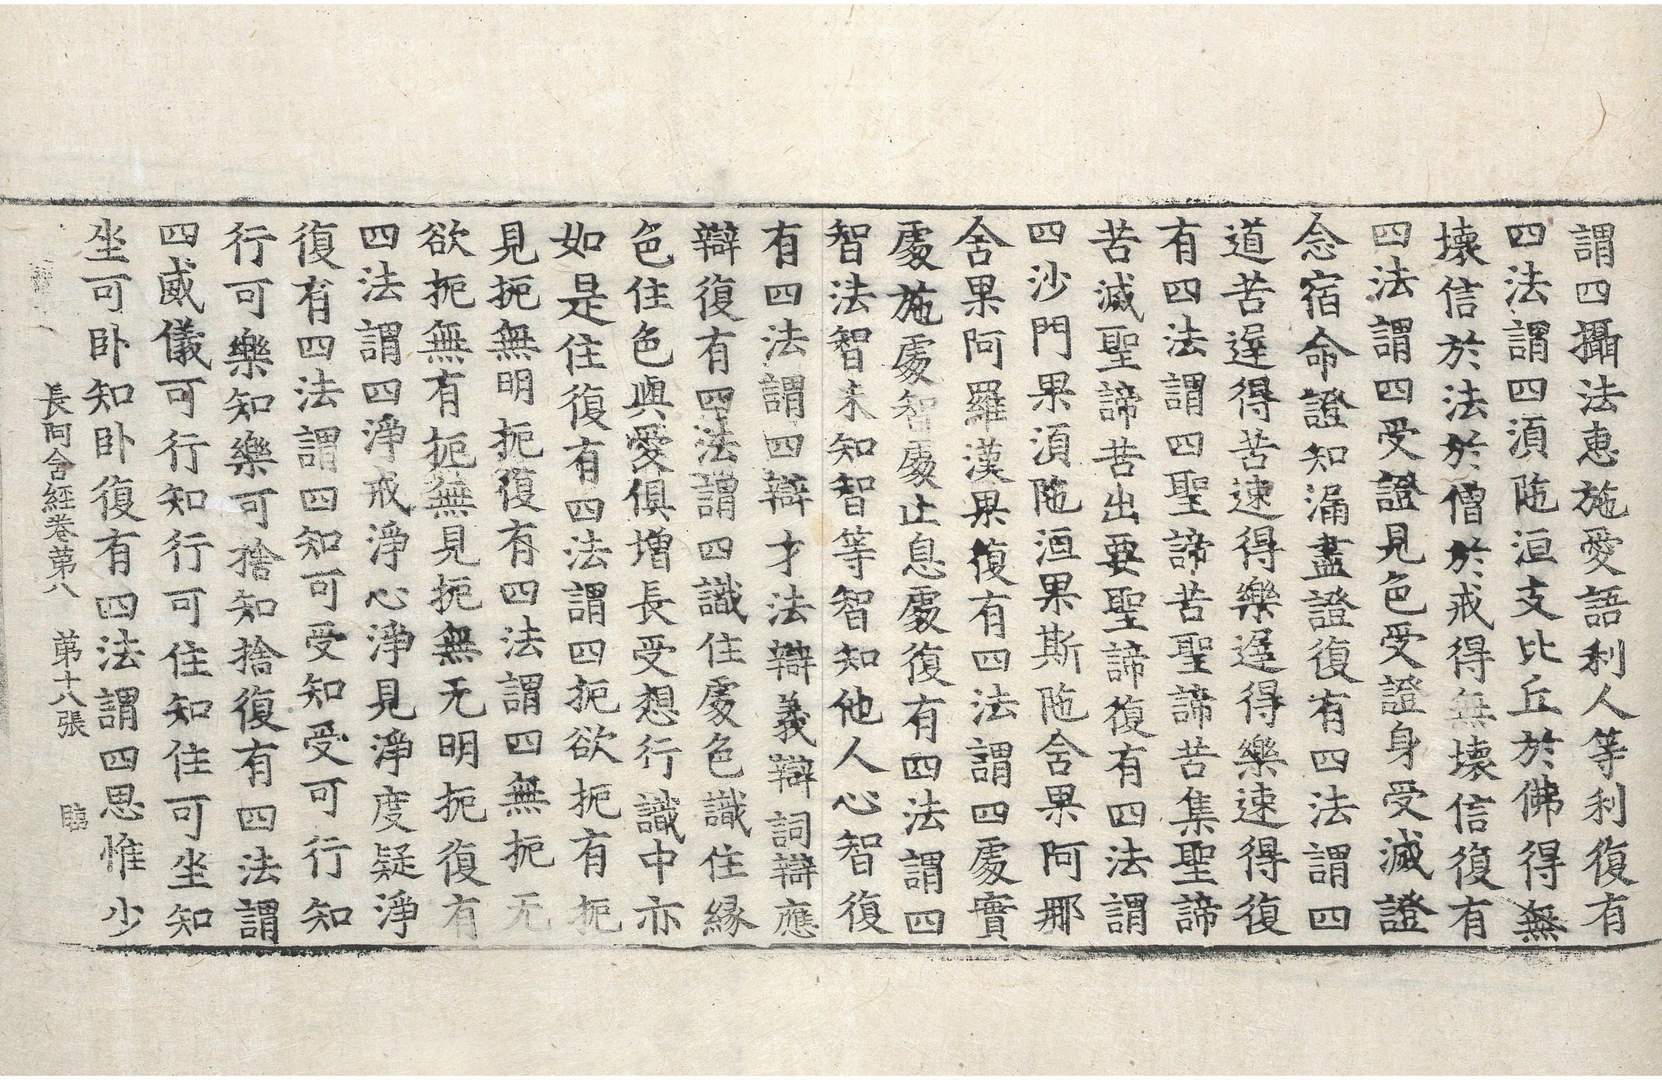 謂四攝法惠施愛語利人等利復有
四法謂四須陁洹支比丘於佛得無
壞信於法於僧於戒得無壞信復有
四法謂四受證見色受證身受滅證
念宿命證知漏盡證復有四法謂四
道苦遲得苦速得樂遲得樂速得復
有四法謂四聖諦苦聖諦苦集聖諦
苦滅聖諦苦出要聖諦復有四法謂
四沙門果須陁洹果斯陁含果阿那
含果阿羅漢果復有四法謂四處實
處施處智處止息處復有四法謂四
智法智未知智等智知他人心智復
有四法謂四辯才法辯義辯詞辯應
辯復有四法謂四識住處色識住緣
色住色與愛俱增長受想行識中亦
如是住復有四法謂四扼欲扼有扼
見扼無明扼復有四法謂四無扼无
欲扼無有扼無見扼無无明扼復有
四法謂四淨戒淨心淨見淨度疑淨
復有四法謂四知可受知受可行知
行可樂知樂可捨知捨復有四法謂
四威儀可行知行可住知住可坐知
坐可卧知卧復有四法謂四思惟少
長阿含經卷第八 第十八張